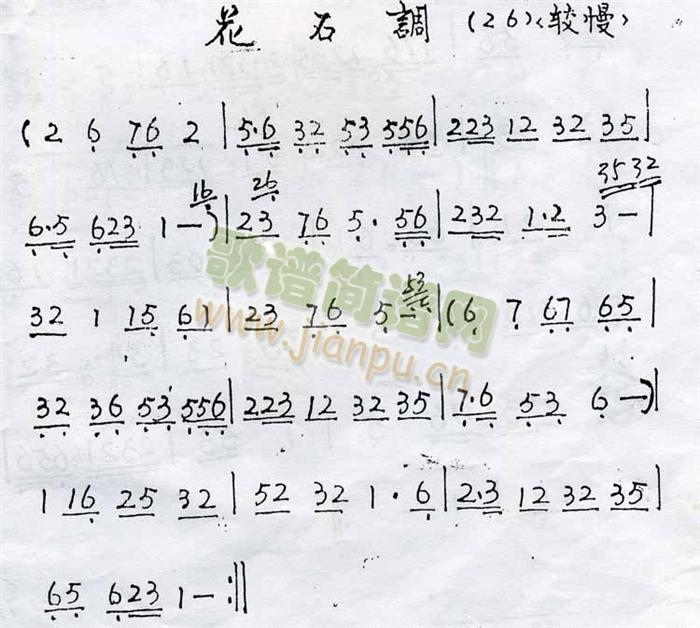 花石調 (26)<较慢>
(2 6 76 2 | 5·6 32 53 556 | 223 12 32 35 |
16 26 3532
6·5 623 1 —) | 23 76 5· 56 | 232 1·2 3 — |
32 1 15 61 | 23 76 5 — | (6 7 67 65 |
歌谱简谱网
www.jianpu.cn
32 36 53 556 | 223 12 32 35 | 7·6 53 6 —) ‖
1 16 25 32 | 52 32 1· 6 | 2·3 12 32 35 |
65 623 1 — :‖